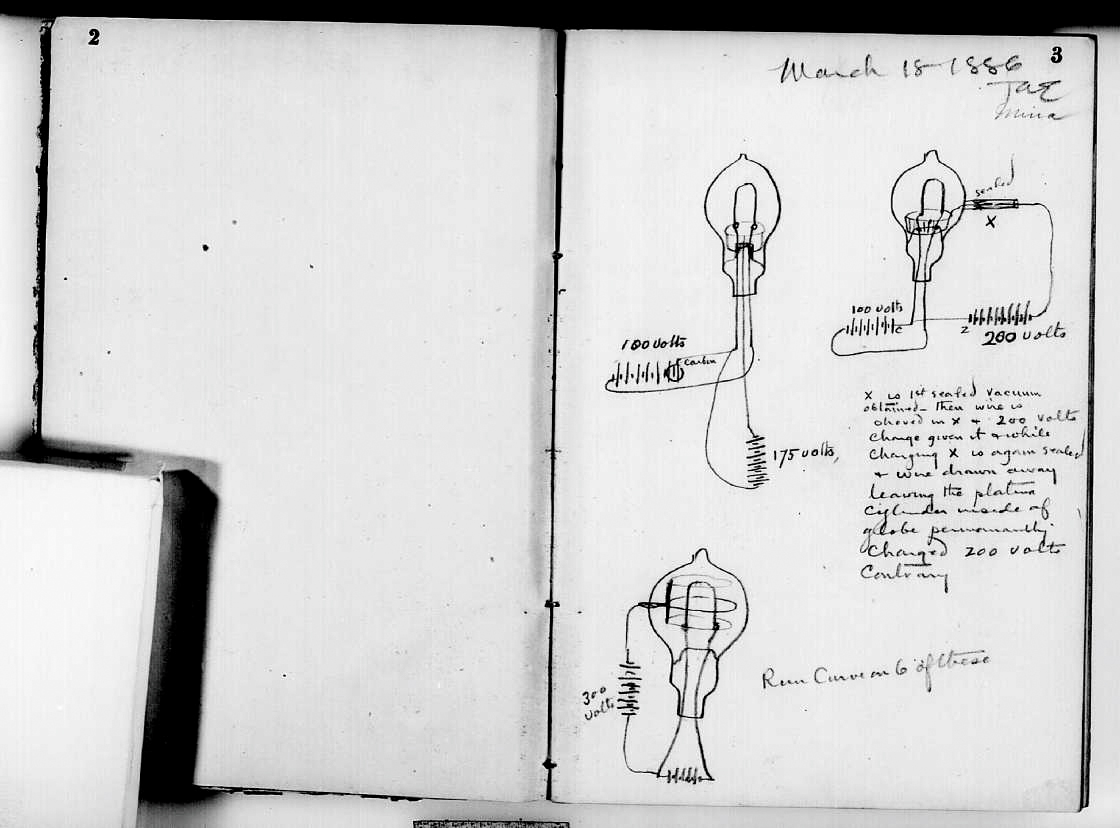 2
3
March 18 1886
TAE
Mina
sealed
X
100 volts
C
Z
200 volts
100 volts
carbon
175 volts,
X is 1st sealed vacuum
obtained— then wire is
shoved in X & 200 volts
Charge given it & while
Charging X is again sealed
& wire drawn away
leaving the platina
Cylinder inside of
globe permanantly
Charged 200 volts
Contrary
300
volts
Run Curve on 6 of these